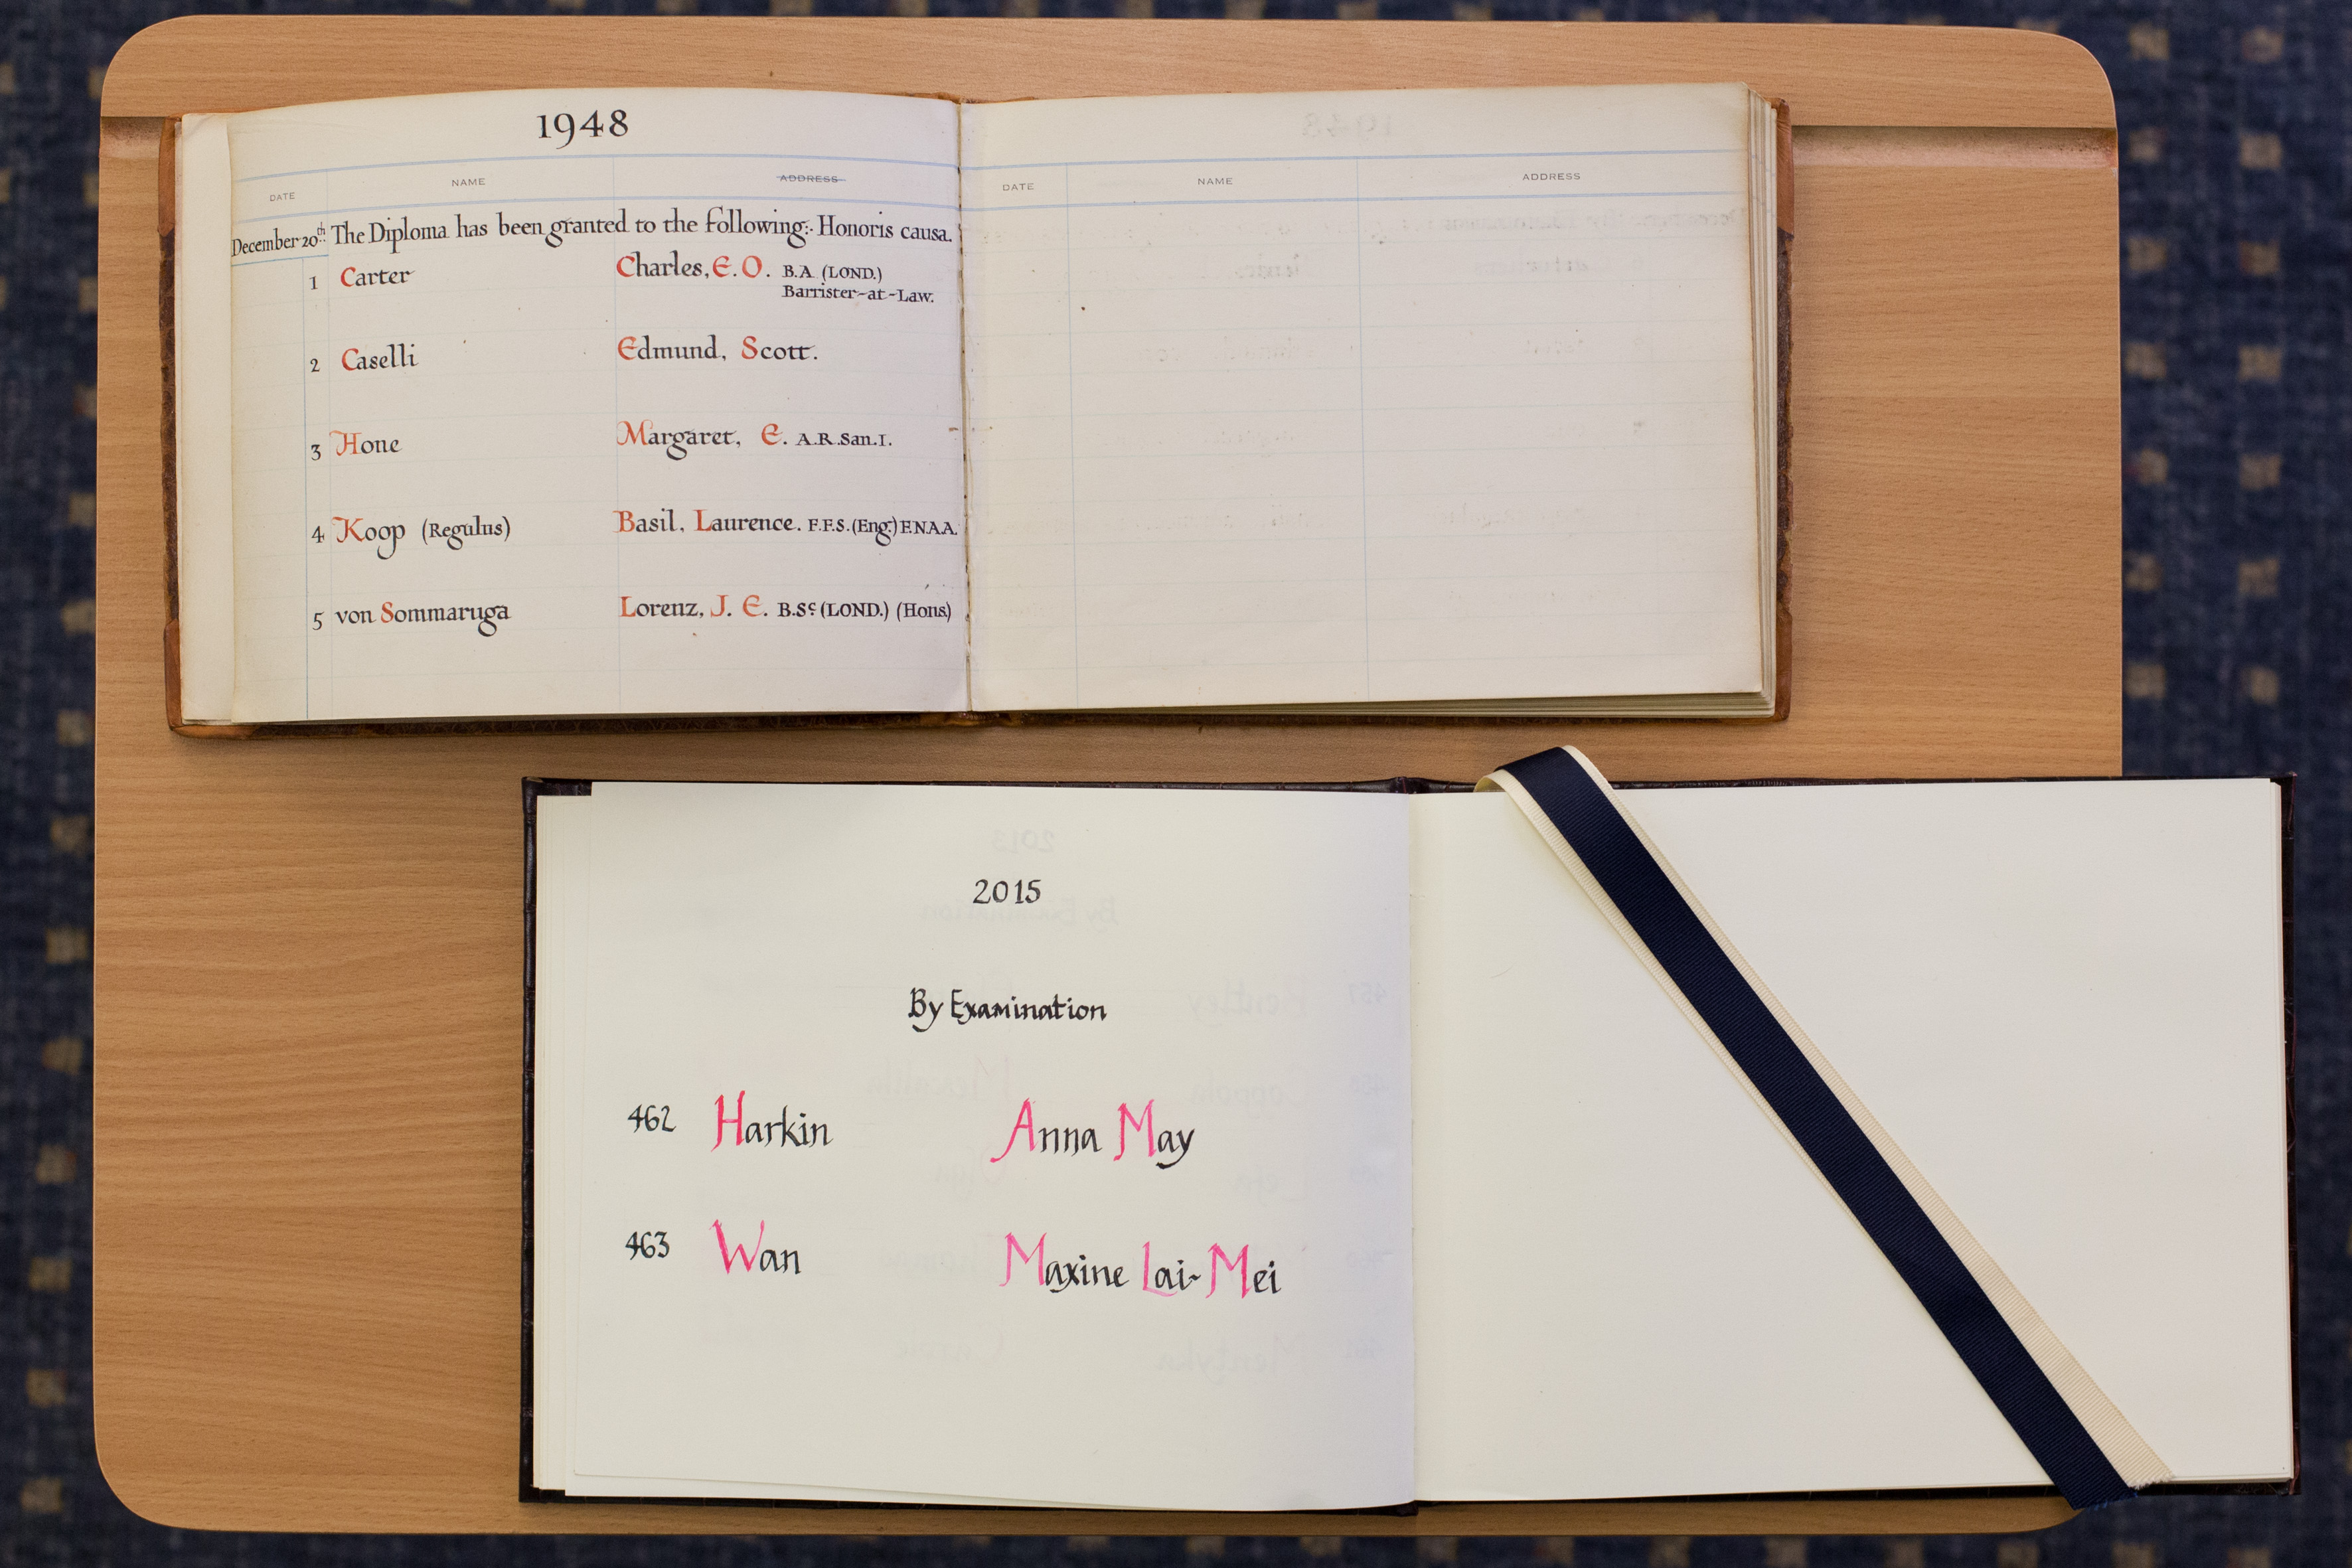 1948
DATE NAME ADDRESS
December 20th The Diploma has been granted to the following:- Honoris causa.
1 Carter Charles, E. O. B.A. (LOND.)
Barrister-at-Law.
2 Caselli Edmund, Scott.
3 Hone Margaret, E. A.R.San.I.
4 Koop (Regulus) Basil, Laurence. F.F.S. (Eng) F.N.A.A.
5 von Sommaruga Lorenz, J. E. B.Sc (LOND.) (Hons)
DATE NAME ADDRESS
2015
By Examination
462 Harkin Anna May
463 Wan Maxine Lai-Mei